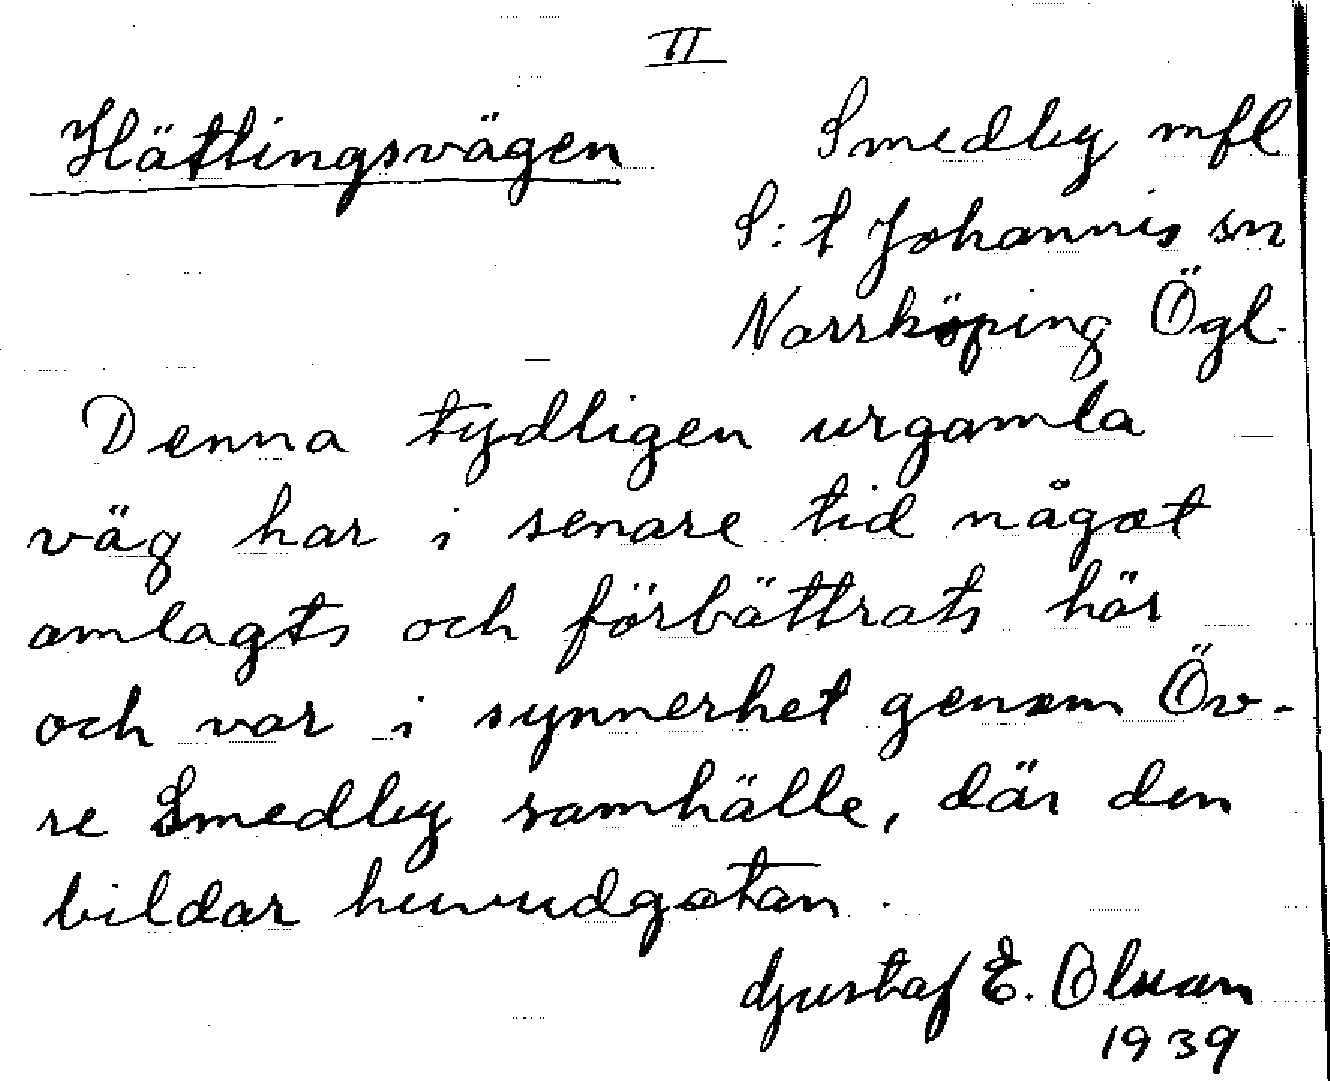 II
Hätlingsvägen
Smedby mfl
S:t Johannis sn
Norrköping Ögl.
Denna tydligen urgamla
väg har i senare tid något
omlagts och förbättrats här
och var i synnerhet genom Öv-
re Smedby samhälle, där den
bildar huvudgatan.
Gustaf E. Olson
1939